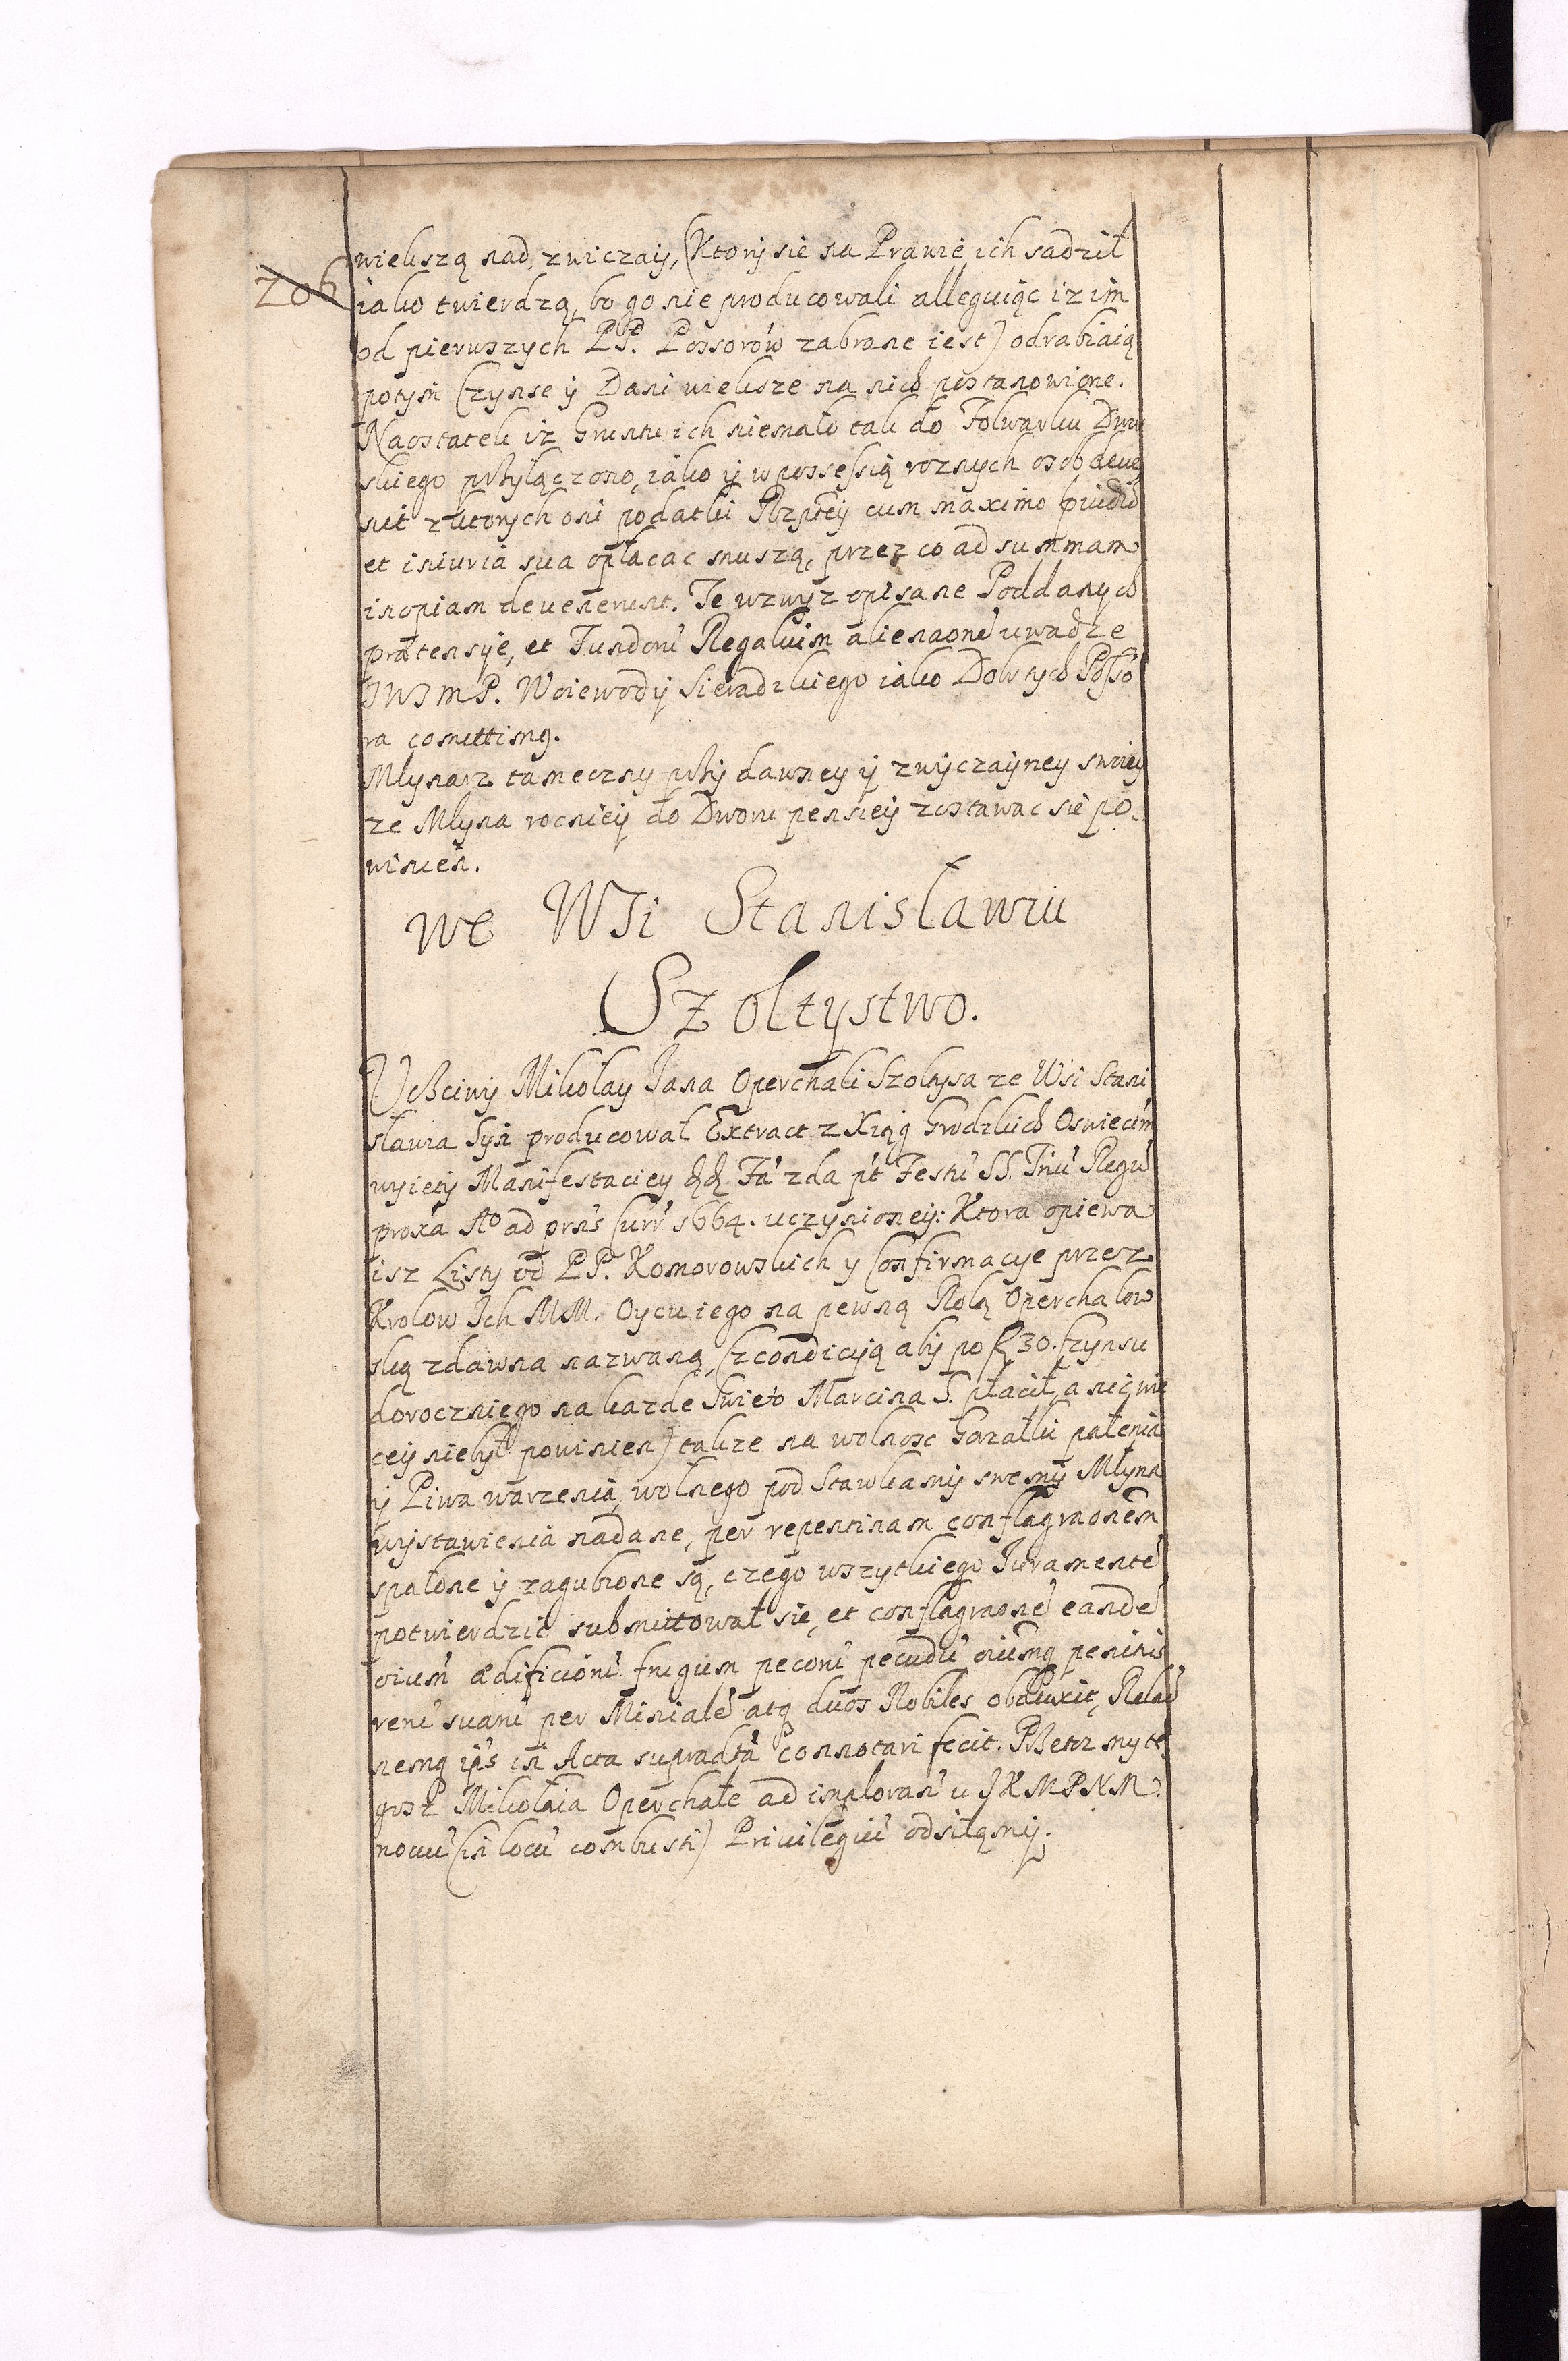 206
wiekszą nad zwiczaij, (Ktorij sie na Prawie ich sadził
iako twierdzą, bo go nie producowali alleguiąc iz im
od pierwszych PP. Possorów zabrane iest) odrabiaią
potym Czynse ÿ Dani wieksze na nich postanowione.
Naostatek iz Gruntu ich niemało tak do Folwarku Dwor
skiego przyłączono, iako ÿ w possessią roznych osob deue
nit z ktorych oni podatki Rzptey cum maximo
et iniuria sua opłacac muszą, przez co ad summam
inopiam deuenerunt. Te wzwyz opisane Poddanych
prætensye, et Fundorū Regalium alienaonē uwadze
JWJmP. Woiewodÿ Sieradzkiego iako Dobr tych Posso
ra comittimq.
Mlynarz tameczny przÿ dawney ÿ zwyczaÿney swoieÿ
ze Mlyna roczneÿ do Dworu penseÿ zostawac sie po-
winien.
we Wsi Stanisławiu
Szoltystwo.
Vczciwÿ Mikołaÿ Jana Operchali Szoltysa ze Wsi Stani
sławia Syn producował Extract z Xiąg Grodzkich Oswiecim
wyiety Manifestacieÿ Fa 2da pt Festū SS. Triū Regū
proxa Ao ad prns Curr 1664. uczynioneÿ: Ktora opiewa
isz Listy od PP. Komorowskich y Confirmacye przez
Krolow Ich MM. Oycu iego na pewną Rolą Operchalow
ską zdawna nazwaną, (z condicyią abÿ po f 30. Czynsu
doroczniego na kazde Swieto Marcina S. płacił, a nic wie
ceÿ niebył powinien) takze na wolnosc Gorzałki palenia
ÿ Piwa warzenia, wolnego pod Stawkamÿ swemÿ Młyna
wÿstawienia nadane, per repentinam conflagraonem
spalone ÿ zagubione są, czego wszytkiego Juramentē
potwierdzić submittował sie, et conflagraonē eandē
oiūm ædificiorū frugum pecorū pecudū oiūmq penitus
rerū suarū per Ministialē atq duos Nobiles obduxit, Relaō
nemq ips in Acta supradta connotari fecit. Przetoz my te
gosz Mikołaia Operchałe ad imploran u JKMPNM.
nouū (in locū combusti) Priuilegiū odsiłąmÿ.